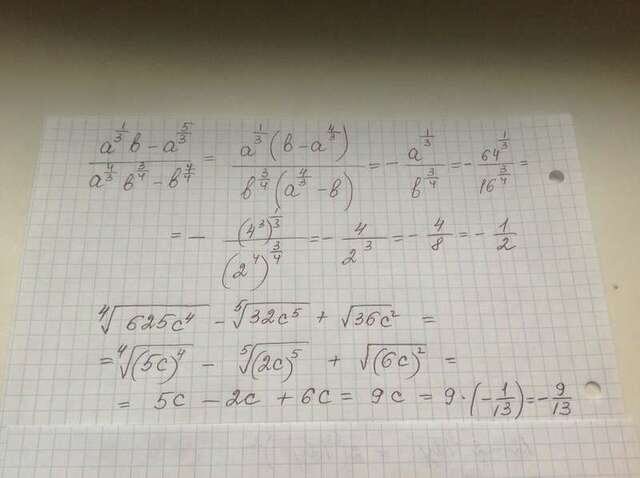 (a^(1/3) b - a^(5/3)) / (a^(4/3) b^(3/4) - b^(7/4)) = (a^(1/3) (b - a^(4/3))) / (b^(3/4) (a^(4/3) - b)) = - a^(1/3) / b^(3/4) = - 64^(1/3) / 16^(3/4) =
= - (4^3)^(1/3) / (2^4)^(3/4) = - 4 / 2^3 = - 4/8 = - 1/2
⁴√(625c^4) - ⁵√(32c^5) + √(36c^2) =
= ⁴√((5c)^4) - ⁵√((2c)^5) + √((6c)^2) =
= 5c - 2c + 6c = 9c = 9 · (-1/13) = -9/13